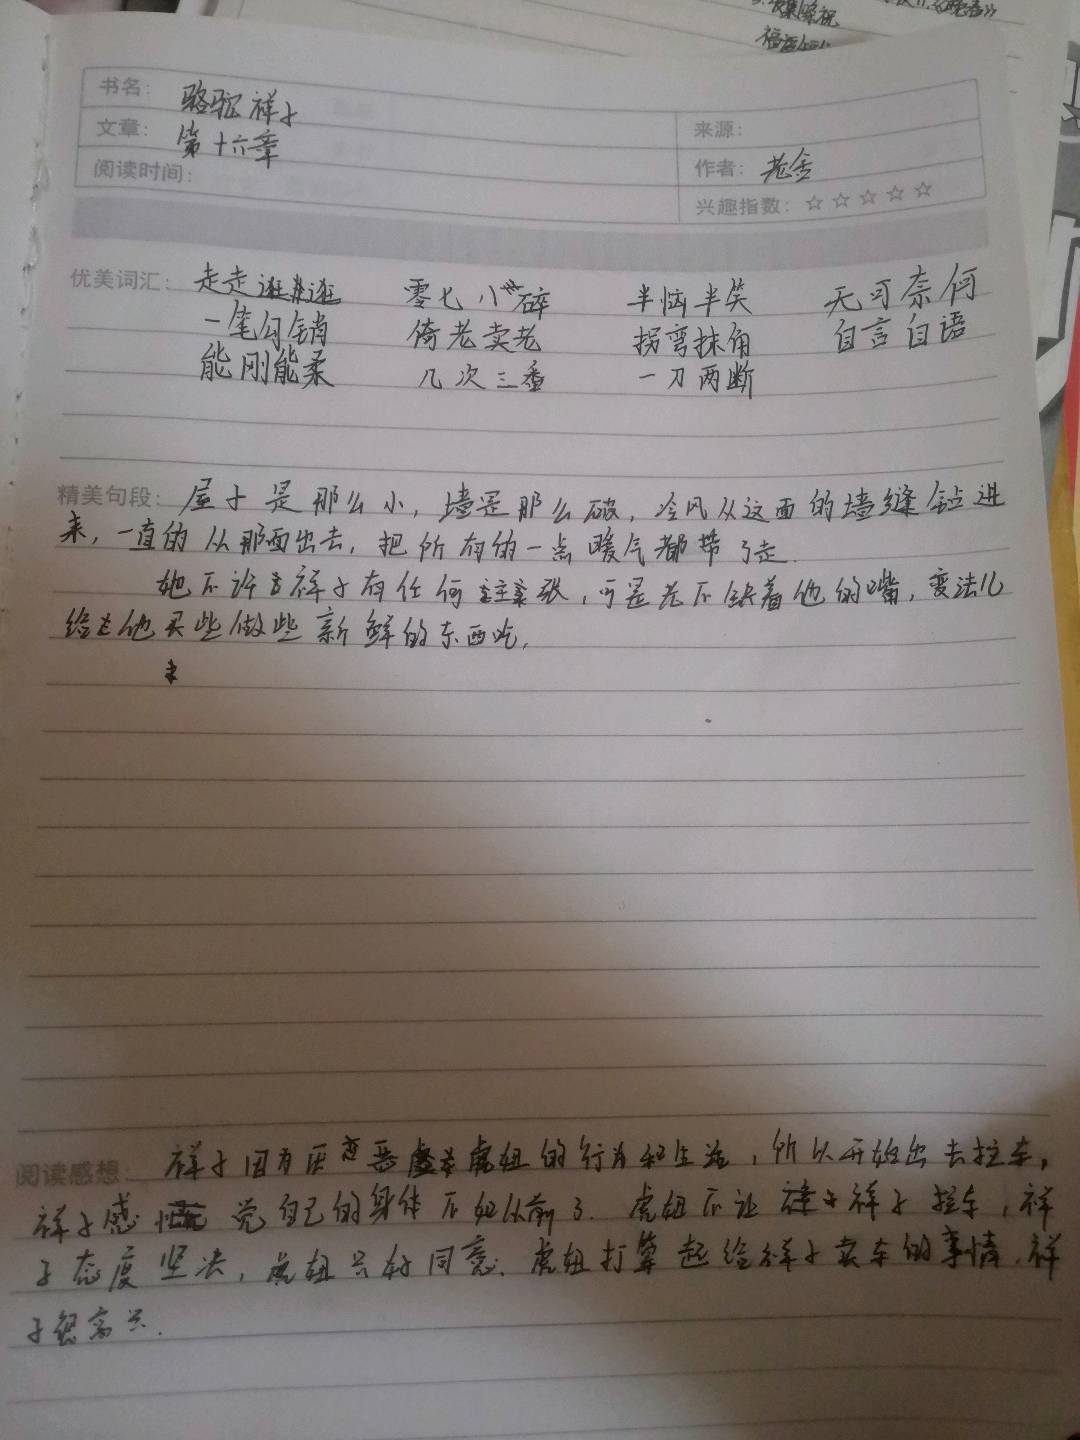 书名: 骆驼祥子
文章: 第十六章
来源:
阅读时间:
作者: 老舍
兴趣指数: ☆☆☆☆☆
优美词汇: 走走逛逛 零七八碎 半恼半笑 无可奈何
一笔勾销 倚老卖老 拐弯抹角 自言自语
能刚能柔 几次三番 一刀两断
精美句段: 屋子是那么小,墙是那么破,冷风从这面的墙缝钻进
来,一直的从那面出去,把所有的一点暖气都带了走.
她不许祥子有任何主张,可是老不缺着他的嘴,变法儿
给他买些做些新鲜的东西吃,
阅读感想: 祥子因为厌恶虎妞的行为和生活,所以开始出去拉车,
祥子感觉自己的身体不如从前了.虎妞不让祥子拉车,祥
子态度坚决,虎妞只好同意.虎妞打算起给祥子卖车的事情.祥
子很高兴.